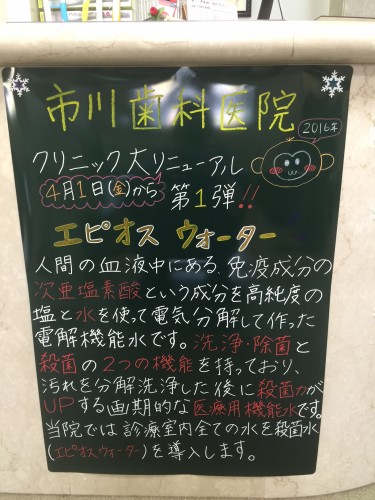 市川歯科医院
2016年
クリニック大リニューアル
4月1日(金)から
第1弾!!
エピオス ウォーター
人間の血液中にある、免疫成分の
次亜塩素酸という成分を高純度の
塩と水を使って電気分解して作った
電解機能水です。洗浄・除菌と
殺菌の2つの機能を持っており、
汚れを分解洗浄した後に殺菌力が
UPする画期的な医療用機能水です。
当院では診療室内全ての水を殺菌水
(エピオスウォーター)を導入します。